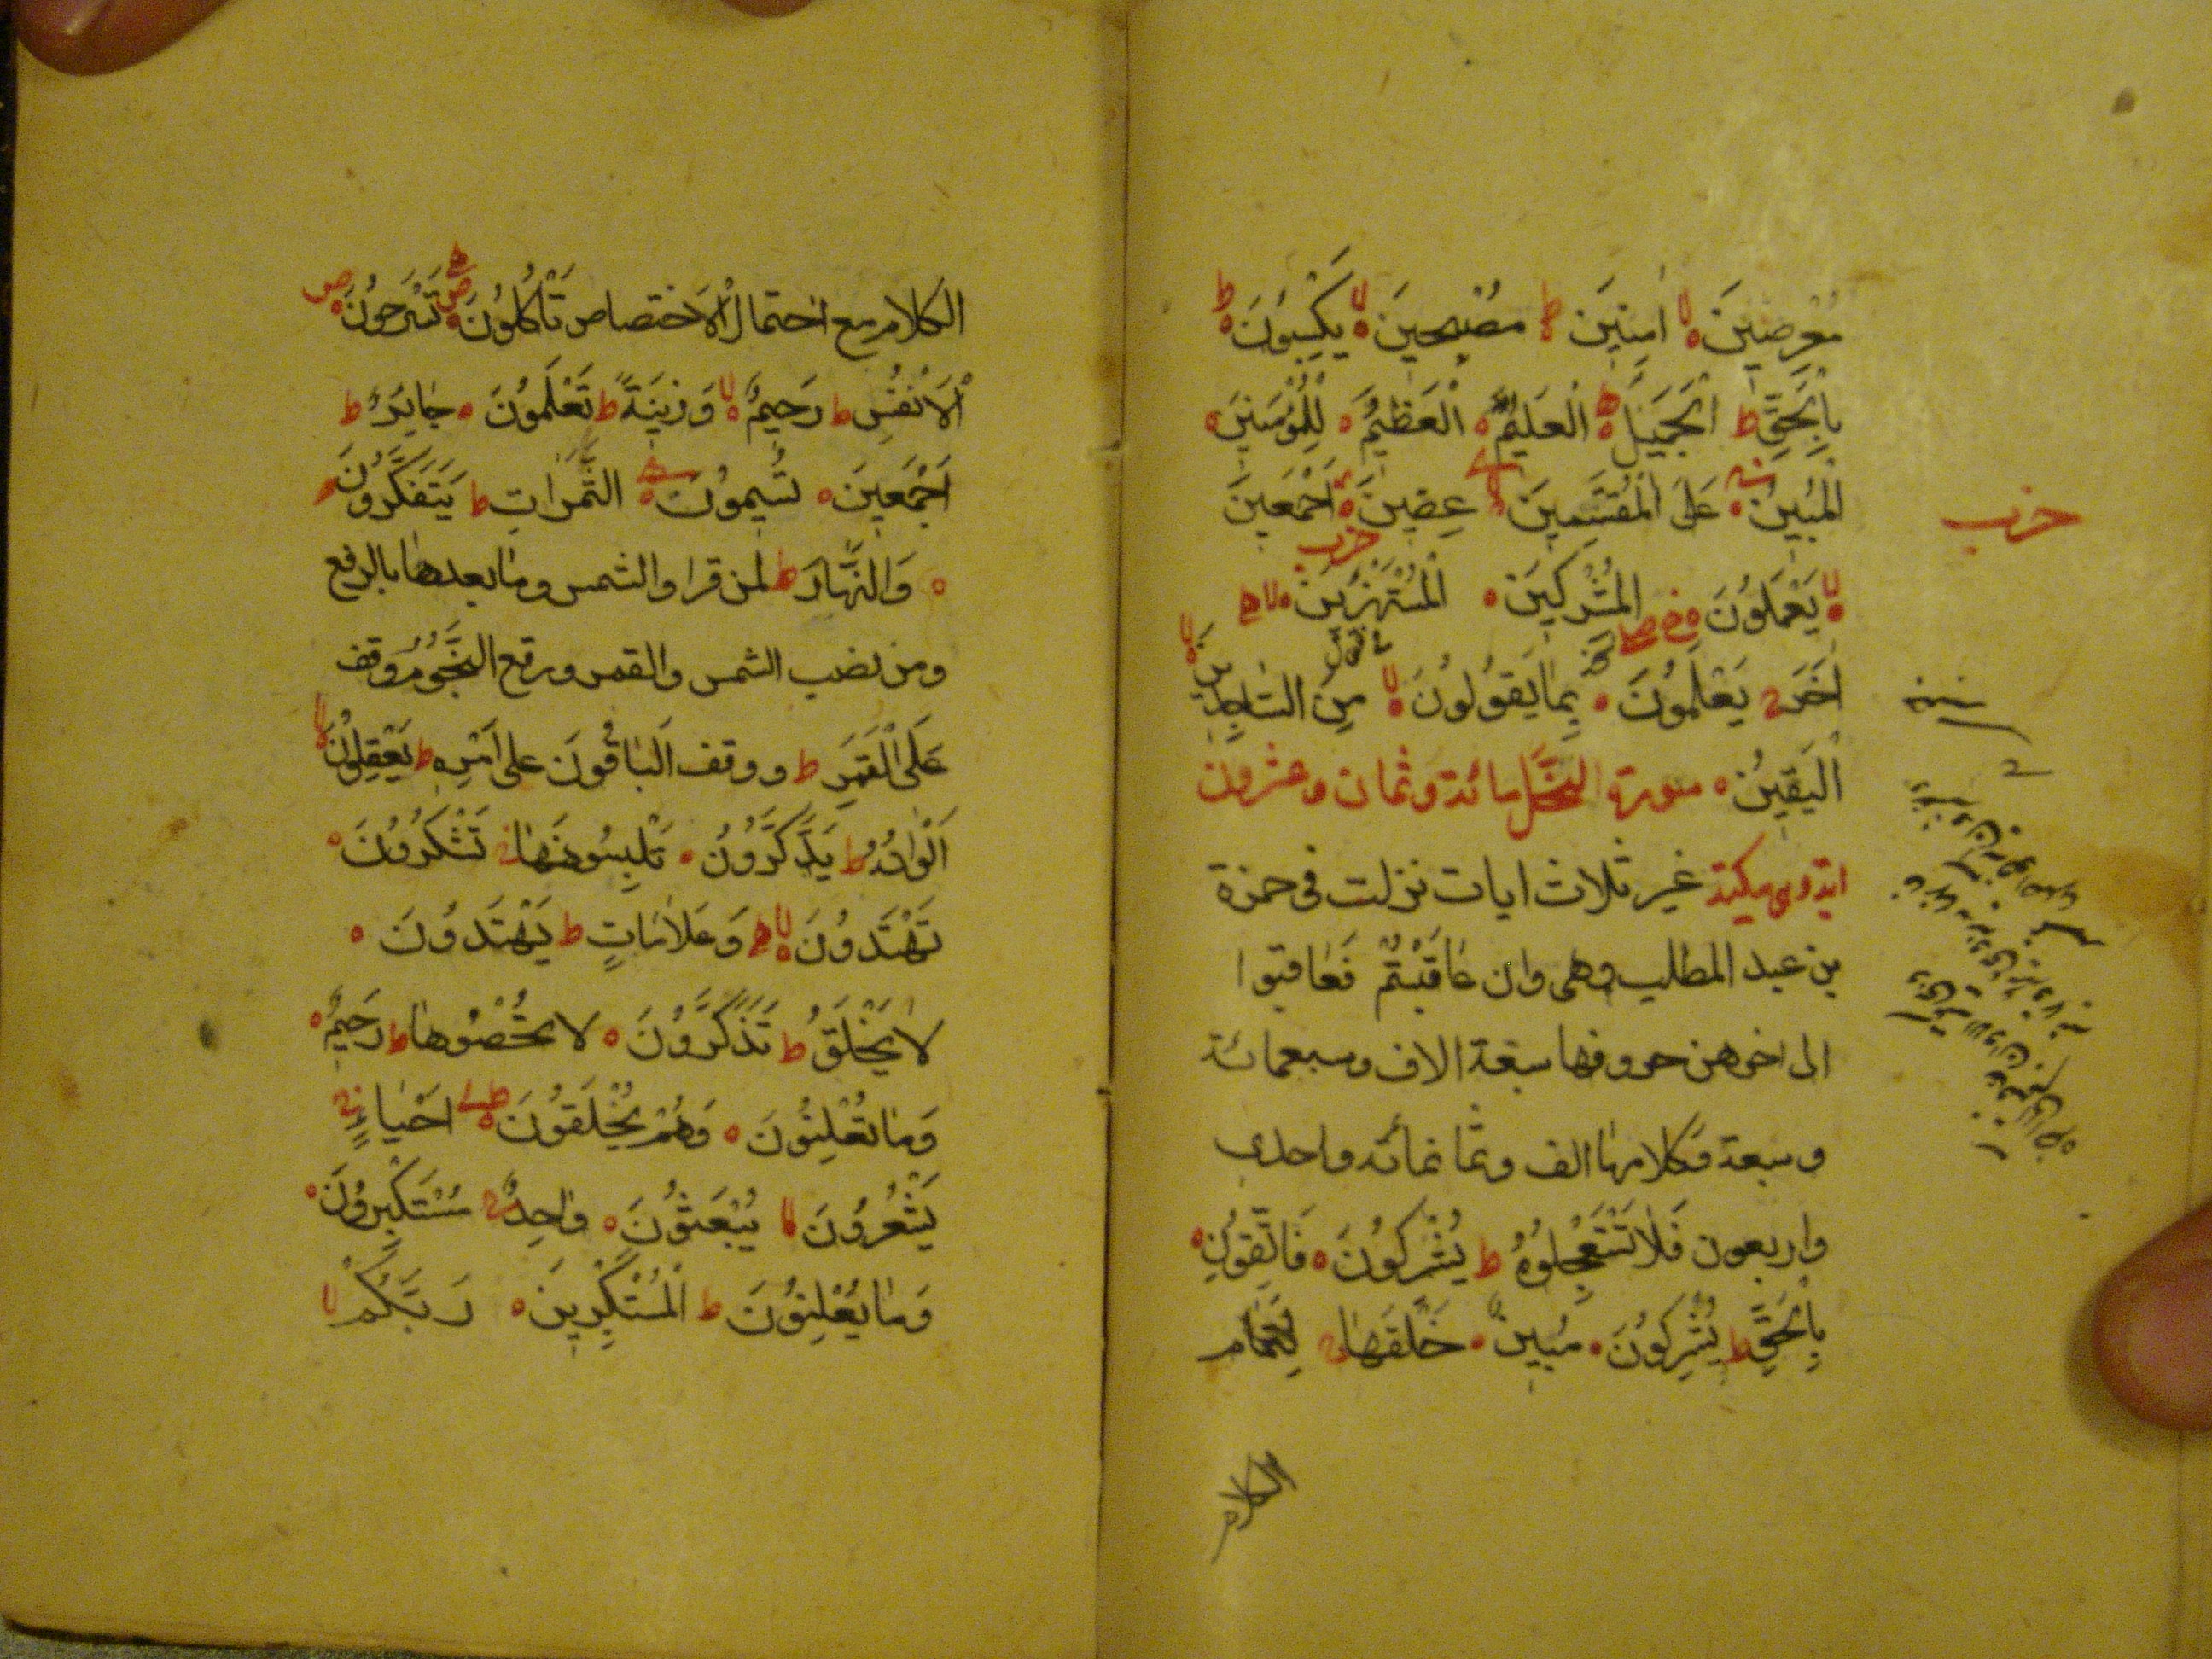 مُعْرِضِينَ ه لا اٰمِنِينَ ط مُصْبِحِينَ ه لا يَكْسِبُونَ ه ط
بِالْحَقِّ ط الْجَمِيلَ ه الْعَلِيمُ ه الْعَظِيمَ ه لِلْمُؤْمِنِينَ ه
الْمُبِينُ ه عَلَى الْمُقْتَسِمِينَ لا عِضِينَ ه اَجْمَعِينَ
ه لا يَعْمَلُونَ ه الْمُشْرِكِينَ ه الْمُسْتَهْزِئِينَ ه لا
حزب
اٰخَرَ ج يَعْلَمُونَ ه بِمَا يَقُولُونَ ه لا مِنَ السَّاجِدِينَ ه لا
الْيَقِينُ ه سورة النَّحْل مائة وثمان وعشرون
اية وهى مكية غير ثلاث ايات نزلت فى حمزة
بن عبد المطلب وهى وان عَاقَبْتُمْ فَعَاقبوا
الى اخرهن حروفها سبعة الاف وسبعمائة
وسبعة وكلامها الف وثما نمائة واحدى
واربعون فَلَا تَسْتَعْجِلُوهُ ط يُشْرِكُونَ ه فَاتَّقُونِ ه
بِالْحَقِّ ط يُشْرِكُونَ ه مُبِينٌ ه خَلَقَهَا ج لِتَمَام
الكلام
حزب
الكلام مع احتمال الْاَختصاص تَأْكُلُونَ ه ص تَسْرَحُونَ ه ص
الْاَنْفُسِ ط رَحِيمٌ ه لا وَزِينَةً ط تَعْلَمُونَ ه جَايِرٌ ط
اَجْمَعِينَ ه تُسِيمُونَ ه الثَّمَرَاتِ ط يَتَفَكَّرُونَ
ه وَالنَّهَارَ ط لمن قرا والشمس وما بعدها بالرفع
ومن نصب الشمس والقمر ورفع النُّجُومُ وقف
عَلَى الْقَمَرِ ط ووقف الْبَاقُونَ على اَمْرِهِ ط يَعْقِلُونَ لا
اَلْوَانُهُ ط يَذَّكَّرُونَ ه تَلْبِسُونَهَا ج تَشْكُرُونَ ه
تَهْتَدُونَ ه لا وَعَلَامَاتٍ ط يَهْتَدُونَ ه
لَا يَخْلُقُ ط تَذَكَّرُونَ ه لا تُحْصُوهَا ط رَحِيمٌ ه
وَمَا تُعْلِنُونَ ه وَهُمْ يُخْلَقُونَ ه ط اَحْيَاءٍ ج
يَشْعُرُونَ لا يُبْعَثُونَ ه وَاحِدٌ ج مُسْتَكْبِرُونَ ه
وَمَا يُعْلِنُونَ ط الْمُسْتَكْبِرِينَ ه رَبُّكُمْ لا